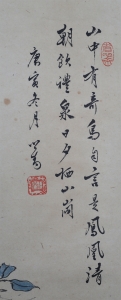 山中有奇鳥自言是鳳凰清
朝飲醴泉日夕栖山岡
庚寅冬月 溥儒